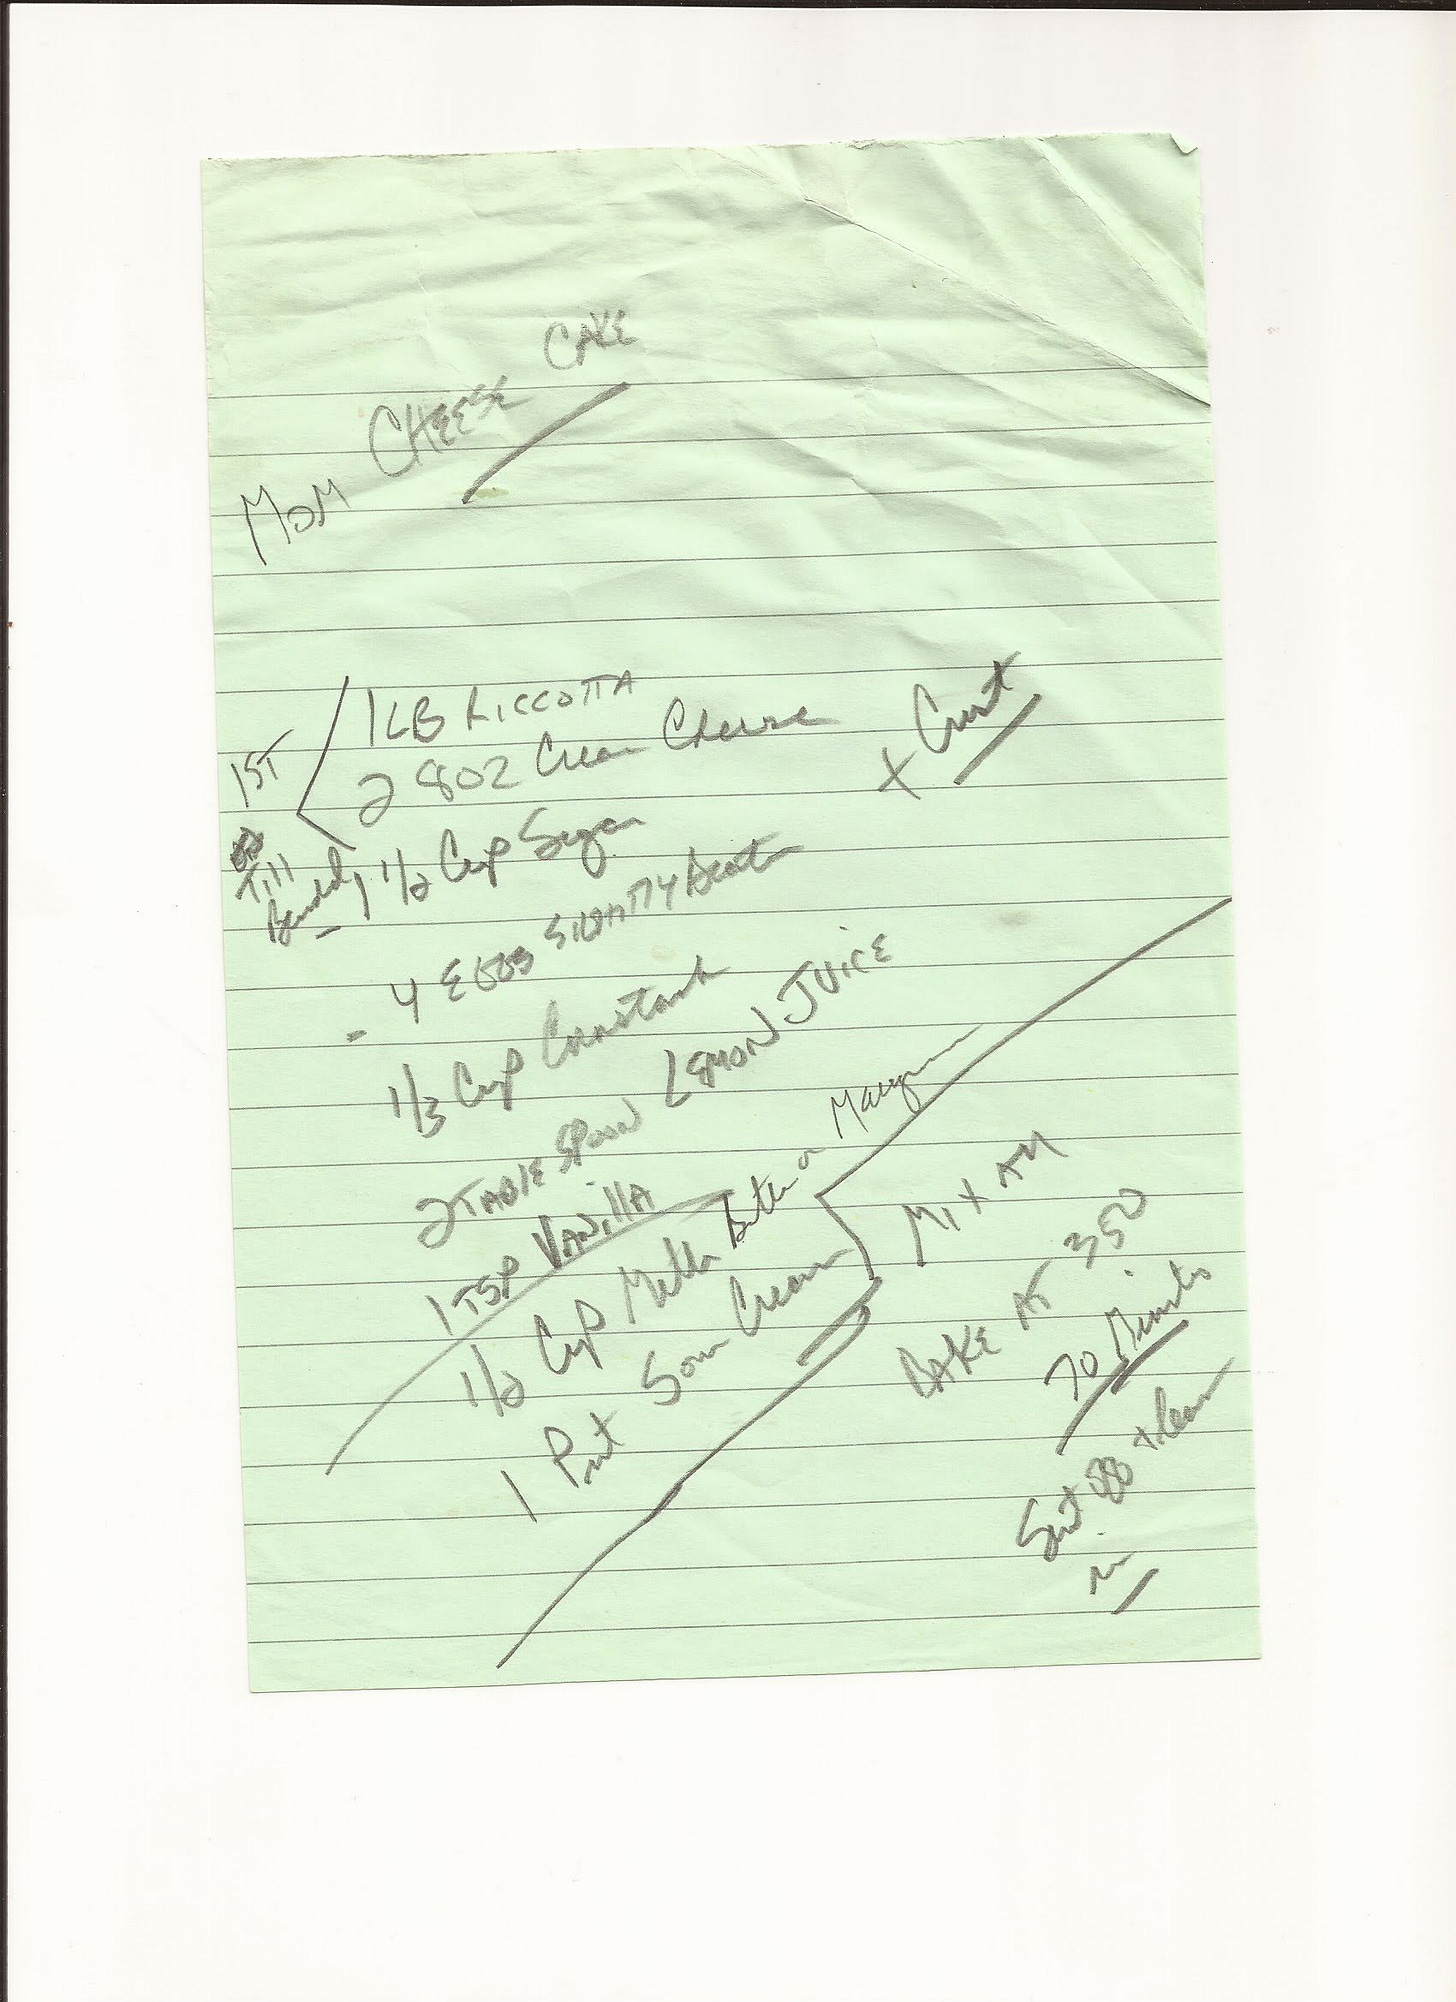 MOM CHEESE CAKE
1LB RiccoTTA
2 8oz Cream Cheese
1ST
Till
Blended
1 1/2 Cup Sugar
X Crust
- 4 EGGS SLIGHTLY Beaten
1/3 Cup Cornstarch
2 TABlE SPOON LEMON JUiCE
1 TSP VANillA
1/2 Cup Melted Butter or Margarine
1 Pint Sour Cream
Mix All
BAKE AT 350
70 Minutes
Shut off + leave
in